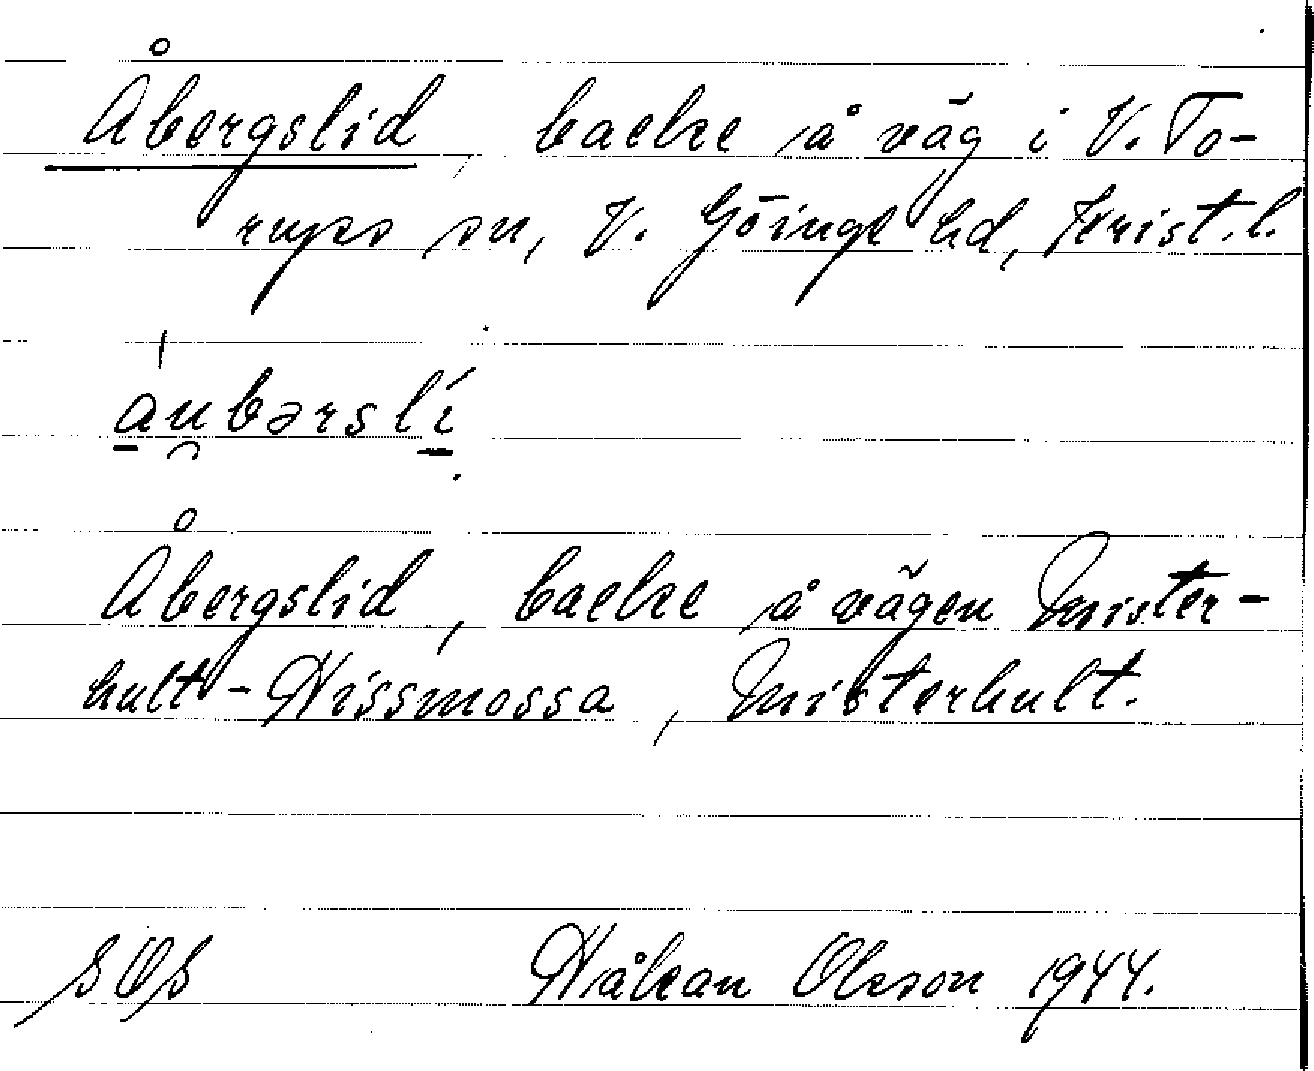 Åbergslid, backe å väg i V. To-
rups sn, V. Göinge hd, Krist. l.
áu̯bərslí
Åbergslid, backe å vägen Mister-
hult-Hissmossa, Misterhult.
SOS Håkan Olsson 1944.